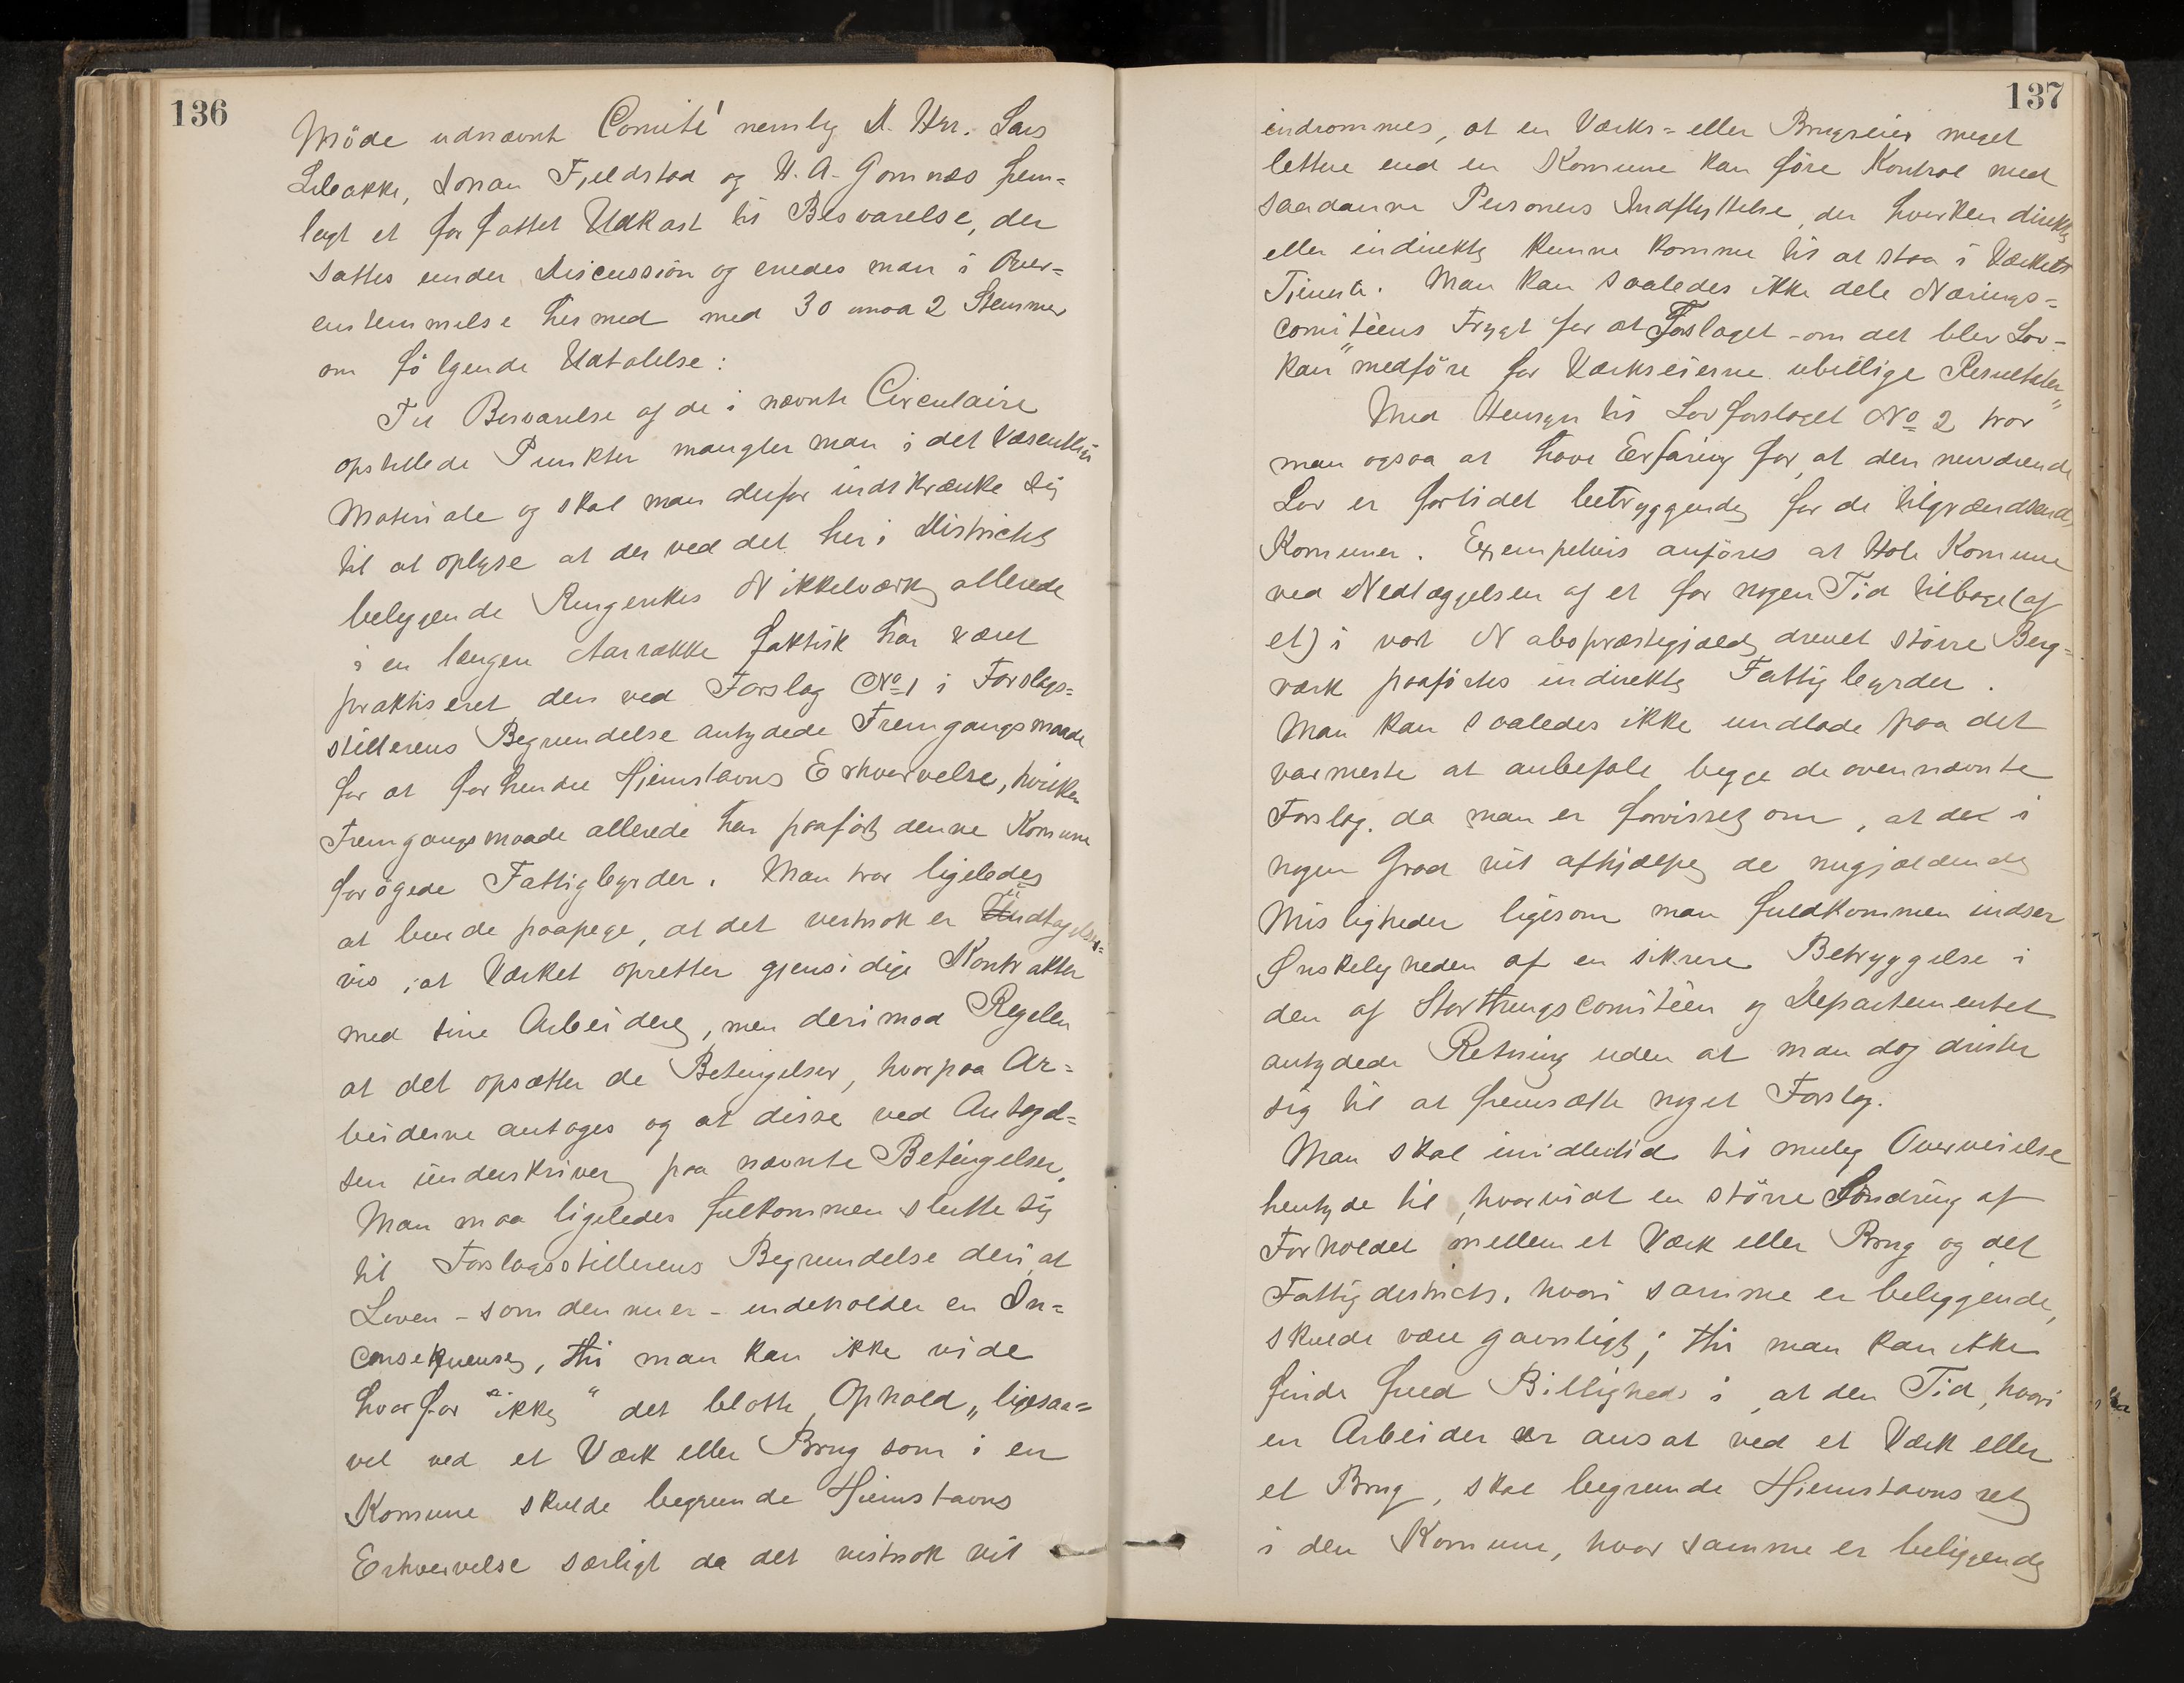 136
Møde udnævnt Comité nemlig d. Hrr. Lars
Lebakke, Johan Fjeldstad og H. A. Gomnæs frem-
lagt et forfattet Udkast til Besvarelse, der
sattes under Discussion og enedes man i Over-
ensstemmelse hermed med 30 mod 2 Stemmer
om følgende Udtalelse:
Til Besvarelse af de i nævnte Circulaire
opstillede Punkter mangler man i det Væsentlige
Materiale og skal man derfor indskrænke sig
til at oplyse at der ved det her i Districtet
beliggende Ringerikes Nikkelværk allerede
i en længere Aarrække faktisk har været
praktiseret den ved Forslag No 1 i Forslags-
stillerens Begrundelse antydede Fremgangsmaade
for at forhindre Hjemstavns Erhvervelse, hvilken
Fremgangsmaade allerede har paaført denne Komune
forøgede Fattigbyrder. Man tror ligeledes
at burde paapege, at det vistnok er Undtagelses-
vis, at Værket opretter gjensidige Kontrakter
med sine Arbeidere, men derimod Regelen
at det opsætter de Betingelser, hvorpaa Ar-
beiderne antages og at disse ved Antagel-
sen underskriver paa nævnte Betingelser.
Man maa ligeledes fuldkommen slutte sig
til Forslagsstillerens Begrundelse deri, at
Loven - som den nu er - indeholder en In-
consekquense, thi man kan ikke vide
hvorfor "ikke" det blotte Ophold „ligesaa-
vel ved et Værk eller Brug som i en
Komune skulde begrunde Hjemstavns
Erhvervelse særligt da det vistnok vil
137
indrømmes, at en Værks- eller Brugseier meget
lettere end en Komune kan føre Kontrol med
saadanne Personers Indflyttelse, der hverken direkte
eller indirekte kunne komme til at staa i Værkets
Tjeneste. Man kan saaledes ikke dele Nærings-
comitéens Frygt for at Forslaget - om det blev Lov -
kan "medføre for Værkseierne ubillige Resultater"
Med Hensyn til Lovforslaget No 2 tror
man ogsaa at have Erfaring for, at den nuværende
Lov er forlidet betryggende for de tilgrændsende
Komuner. Exempelvis anføres at Hole Komune
ved Nedlæggelsen af et for nogen Tid tilbage (af
et) i vort Nabopræstegjæld drevet større Berg-
værk paaførtes indirekte Fattigbyrder.
Man kan saaledes ikke undlade paa det
varmeste at anbefale begge de ovennævnte
Forslag, da man er forvisset om, at det i
nogen Grad vil afhjælpe de nugjældende
Misligheder ligesom man fuldkommen indser
Ønskeligheden af en sikrere Betryggelse i
den af Storthingscomitéen og Departementet
antydede Retning uden at man dog drister
sig til at fremsætte noget Forslag.
Man skal imidlertid til mulig Overveielse
hentyde til, hvorvidt en større Sondring af
Forholdet mellem et Værk eller Brug og det
Fattigdistrict, hvori samme er beliggende,
skulde være gavnligt; thi man kan ikke
finde fuld Billighed i, at den Tid, hvori
en Arbeider er ansat ved et Værk eller
et Brug, skal begrunde Hjemstavnsret
i den Komune, hvor samme er beliggende